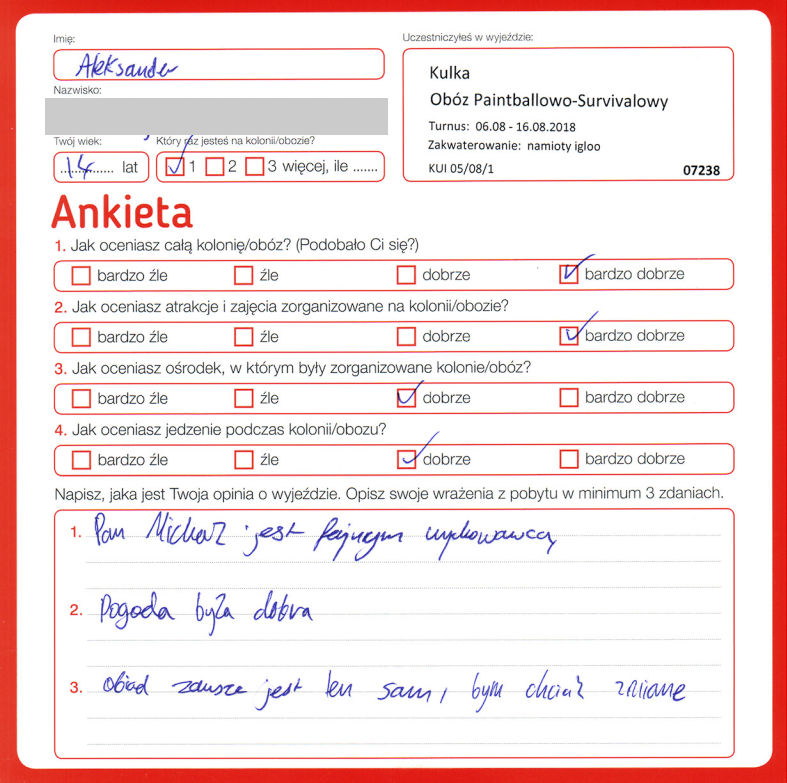 Imię:
Uczestniczyłeś w wyjeździe:
Aleksander
Kulka
Nazwisko:
Obóz Paintballowo-Survivalowy
Turnus: 06.08 - 16.08.2018
Twój wiek:
Który raz jesteś na kolonii/obozie?
Zakwaterowanie: namioty igloo
14 lat
1 2 3 więcej, ile .......
KUI 05/08/1
07238
Ankieta
1. Jak oceniasz całą kolonię/obóz? (Podobało Ci się?)
bardzo źle źle dobrze bardzo dobrze
2. Jak oceniasz atrakcje i zajęcia zorganizowane na kolonii/obozie?
bardzo źle źle dobrze bardzo dobrze
3. Jak oceniasz ośrodek, w którym były zorganizowane kolonie/obóz?
bardzo źle źle dobrze bardzo dobrze
4. Jak oceniasz jedzenie podczas kolonii/obozu?
bardzo źle źle dobrze bardzo dobrze
Napisz, jaka jest Twoja opinia o wyjeździe. Opisz swoje wrażenia z pobytu w minimum 3 zdaniach.
1. Pan Michał jest fajnym wychowawcą
2. Pogoda była dobra
3. Obiad zawsze jest ten sam, bym chciał zmianę